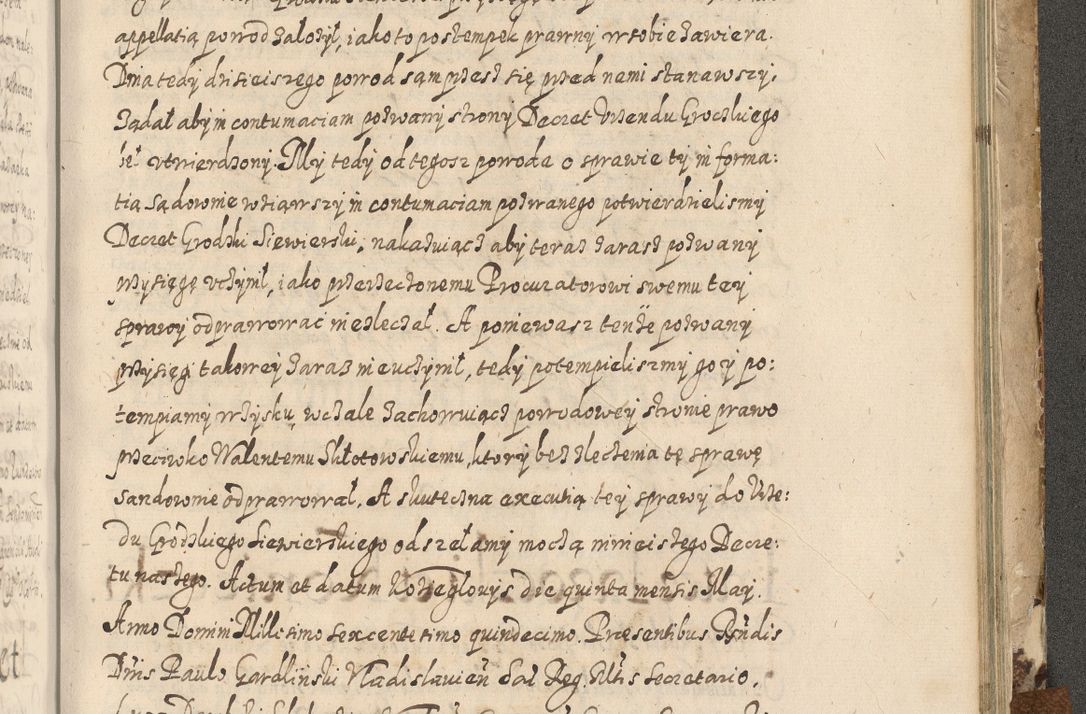 appellatią powod załozył, iako to postempek prawny w sobie zawiera.
Dnia tedy dzisieiszego powod sam przesz się przed nami stanąwszy,
Ządał aby in contumaciam pozwany strony Decret Vrzendu Grodzkiego
beł vtwierdzony. My tedy od tegosz powoda o sprawie tey in forma:
tią sądownie wziąwszy in contumaciam pozwanego potwierdzielismy
Decret Grodzki Siewierski, nakazuiącz aby teraz zarasz pozwany
przysięgę vczynił, iako przerzeczonemu Procuratorowi swemu tey
sprawy odprawowac niezleczał. A poniewasz tenże pozwany
przysięgi takowey zaraz nieuczynił, tedy potempielismy go y po:
tempiamy w zysku, wcale zachowuiącz powodowey stronie prawo
przeciwko Walentemu Skłotowskiemu, ktory bez zleczenia tę sprawę
sandownie odprawował. A skuteczna executią tey sprawy do Vrze:
du Grodzkiego Siewierskiego odszełamy moczą ninieiszego Decre:
tu naszego. Actum et datum Kozieglovys die quinta mensis May.
Anno Domini Millesimo sexcentesimo quindecimo. Præsentibus Rndis
Dnis Paulo Gardlinski Vladislavien Sac Reg. Mtis Secretario,